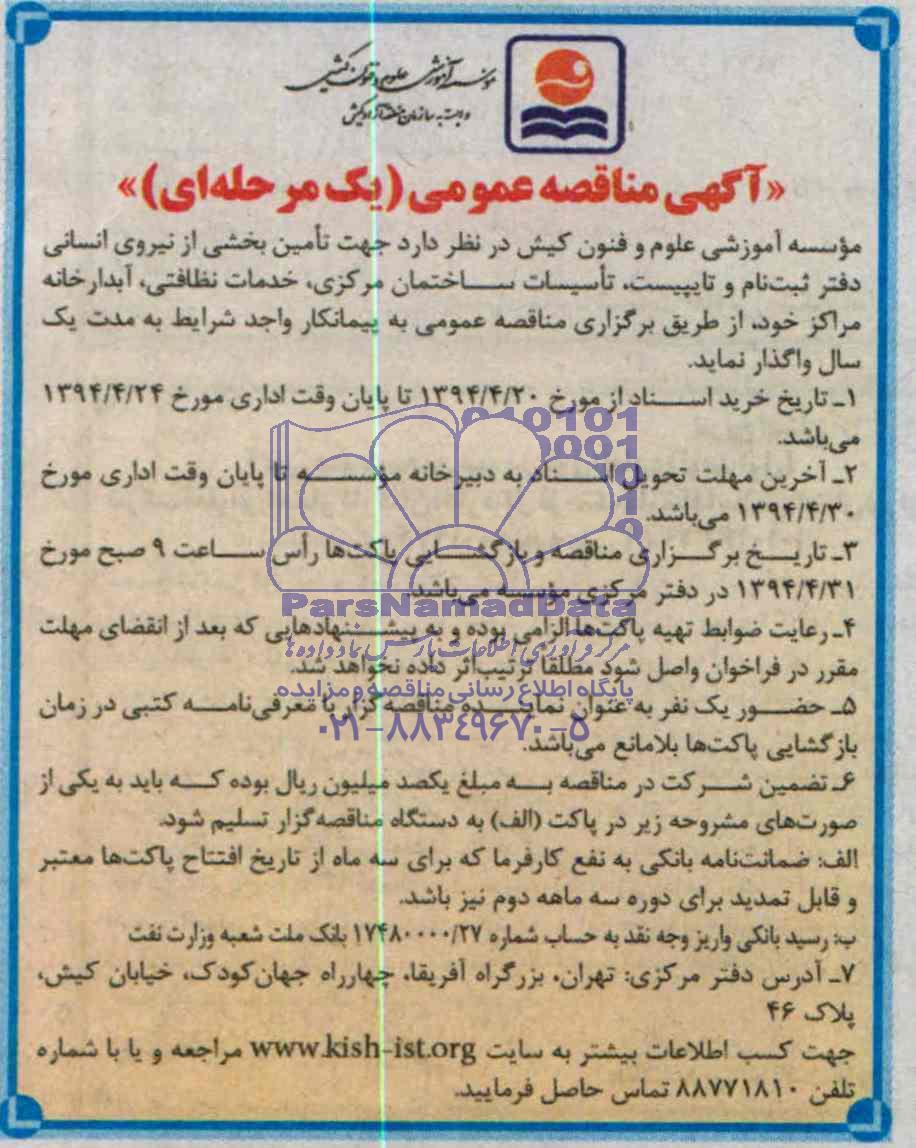 مؤسسه آموزشی علوم و فنون کیش
وابسته به سازمان منطقه آزاد کیش
«آگهی مناقصه عمومی (یک مرحله‌ای)»
مؤسسه آموزشی علوم و فنون کیش در نظر دارد جهت تأمین بخشی از نیروی انسانی
دفتر ثبت‌نام و تایپیست، تأسیسات ساختمان مرکزی، خدمات نظافتی، آبدارخانه
مراکز خود، از طریق برگزاری مناقصه عمومی به پیمانکار واجد شرایط به مدت یک
سال واگذار نماید.
۱ـ تاریخ خرید اسناد از مورخ ۱۳۹۴/۴/۲۰ تا پایان وقت اداری مورخ ۱۳۹۴/۴/۲۴
می‌باشد.
۲ـ آخرین مهلت تحویل اسناد به دبیرخانه مؤسسه تا پایان وقت اداری مورخ
۱۳۹۴/۴/۳۰ می‌باشد.
۳ـ تاریخ برگزاری مناقصه و بازگشایی پاکت‌ها رأس ساعت ۹ صبح مورخ
۱۳۹۴/۴/۳۱ در دفتر مرکزی مؤسسه می‌باشد.
ParsNamadData
۴ـ رعایت ضوابط تهیه پاکت‌ها الزامی بوده و به پیشنهادهایی که بعد از انقضای مهلت
مرکز فرآوری اطلاعات پارس نماد داده‌ها
مقرر در فراخوان واصل شود مطلقاً ترتیب‌اثر داده نخواهد شد.
پایگاه اطلاع رسانی مناقصه و مزایده
۵ـ حضور یک نفر به عنوان نماینده مناقصه‌گزار با معرفی‌نامه کتبی در زمان
۰۲۱-۸۸۳۴۹۶۷۰-۵
بازگشایی پاکت‌ها بلامانع می‌باشد.
۶ـ تضمین شرکت در مناقصه به مبلغ یکصد میلیون ریال بوده که باید به یکی از
صورت‌های مشروحه زیر در پاکت (الف) به دستگاه مناقصه‌گزار تسلیم شود.
الف: ضمانت‌نامه بانکی به نفع کارفرما که برای سه ماه از تاریخ افتتاح پاکت‌ها معتبر
و قابل تمدید برای دوره سه ماهه دوم نیز باشد.
ب: رسید بانکی واریز وجه نقد به حساب شماره ۱۷۴۸۰۰۰۰/۲۷ بانک ملت شعبه وزارت نفت
۷ـ آدرس دفتر مرکزی: تهران، بزرگراه آفریقا، چهارراه جهان‌کودک، خیابان کیش،
پلاک ۴۶
جهت کسب اطلاعات بیشتر به سایت www.kish-ist.org مراجعه و یا با شماره
تلفن ۸۸۷۷۱۸۱۰ تماس حاصل فرمایید.